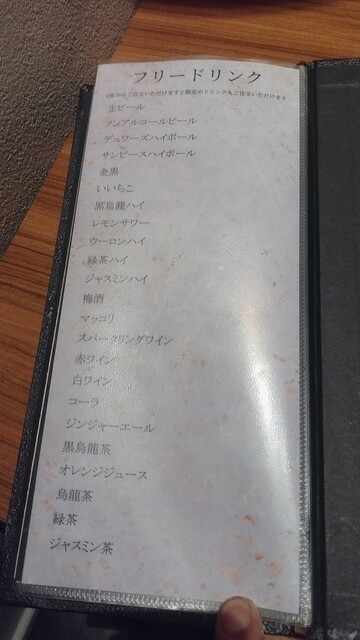 フリードリンク
ご注文いただけますと限定のドリンクもご注文いただけます
生ビール
ノンアルコールビール
デュワーズハイボール
サンピースハイボール
金黒
いいちこ
黒烏龍ハイ
レモンサワー
ウーロンハイ
緑茶ハイ
ジャスミンハイ
梅酒
マッコリ
スパークリングワイン
赤ワイン
白ワイン
コーラ
ジンジャーエール
黒烏龍茶
オレンジジュース
烏龍茶
緑茶
ジャスミン茶